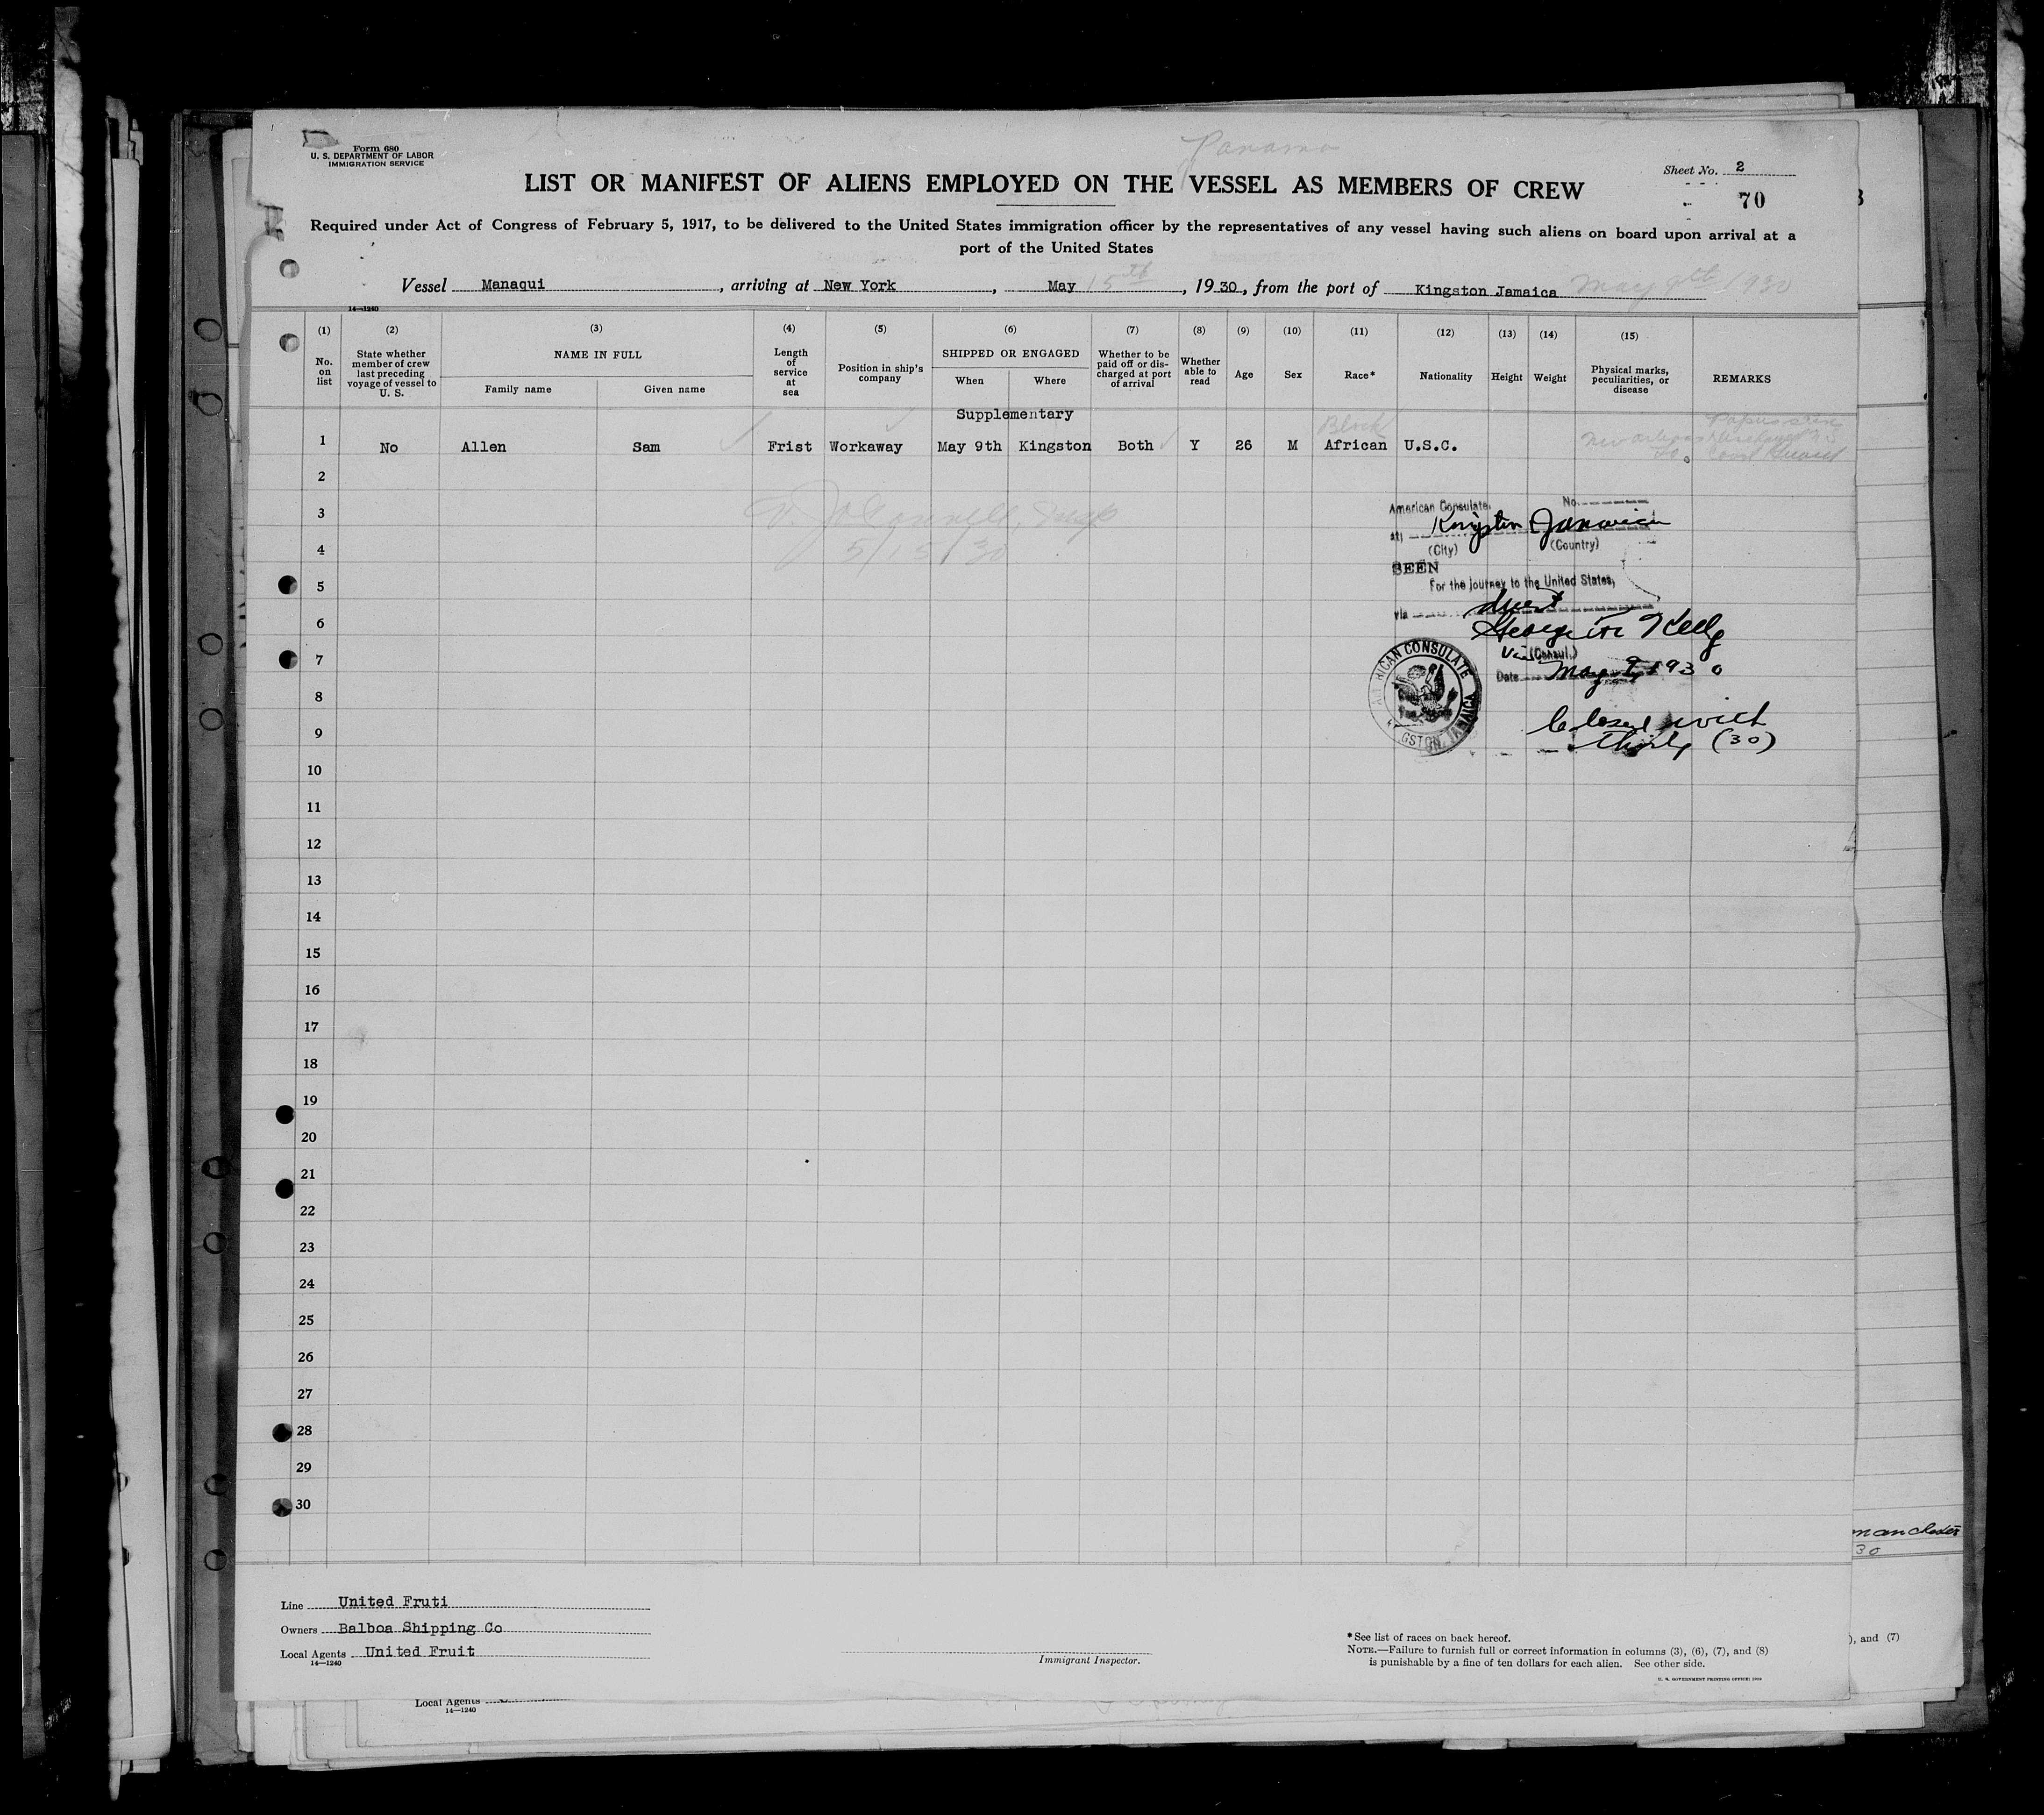 Form 680
U. S. DEPARTMENT OF LABOR
IMMIGRATION SERVICE
Panama
Sheet No. 2
70
LIST OR MANIFEST OF ALIENS EMPLOYED ON THE VESSEL AS MEMBERS OF CREW
Required under Act of Congress of February 5, 1917, to be delivered to the United States immigration officer by the representatives of any vessel having such aliens on board upon arrival at a
port of the United States
Vessel Managui, arriving at New York, May 15th, 1930, from the port of Kingston Jamaica May 9th 1930
14—1240
(1) (2) (3) (4) (5) (6) (7) (8) (9) (10) (11) (12) (13) (14) (15)
No. on list
State whether member of crew last preceding voyage of vessel to U. S.
NAME IN FULL
Family name Given name
Length of service at sea
Position in ship's company
SHIPPED OR ENGAGED
When Where
Whether to be paid off or discharged at port of arrival
Whether able to read
Age
Sex
Race*
Nationality
Height
Weight
Physical marks, peculiarities, or disease
REMARKS
Supplementary
Black
1 No Allen Sam Frist Workaway May 9th Kingston Both Y 26 M African U.S.C.
2
3
4
5/15/30
5
6
7
8
9
10
11
12
13
14
15
16
17
18
19
20
21
22
23
24
25
26
27
28
29
30
American Consulate, No.
at Kingston Jamaica
(City) (Country)
SEEN
For the journey to the United States,
via direct
George W Kelly
Vice (Consul.)
Date May 9, 1930
AMERICAN CONSULATE
KINGSTON, JAMAICA
Closed with
thirty (30)
manchester
30
Line United Fruti
Owners Balboa Shipping Co
Local Agents United Fruit
14—1240
Immigrant Inspector.
*See list of races on back hereof.
NOTE.—Failure to furnish full or correct information in columns (3), (6), (7), and (8)
is punishable by a fine of ten dollars for each alien. See other side.
U. S. GOVERNMENT PRINTING OFFICE: 1928
), and (7)
Local Agents
14—1240